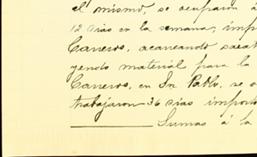 el mismo, se ocuparon á
12 dias en la semana, imp
Carreros, acarreando zacat
yendo material para la
Carreros, en Sn Pablo, se o
trabajaron 36 dias import
Sumas á la